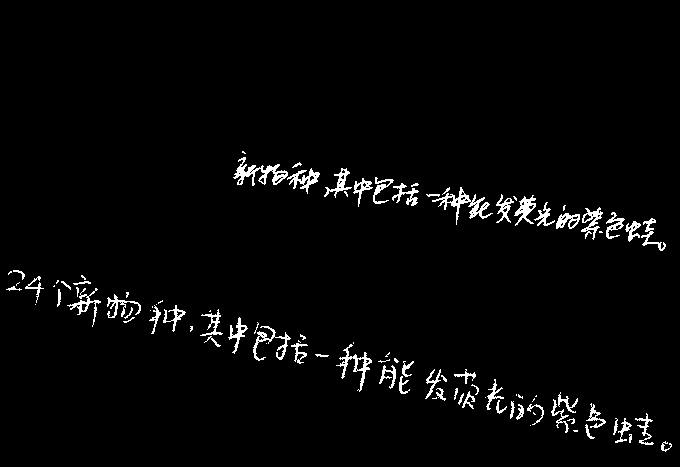 新物种,其中包括一种能发荧光的紫色蛙。
24个新物种,其中包括一种能发荧光的紫色蛙。